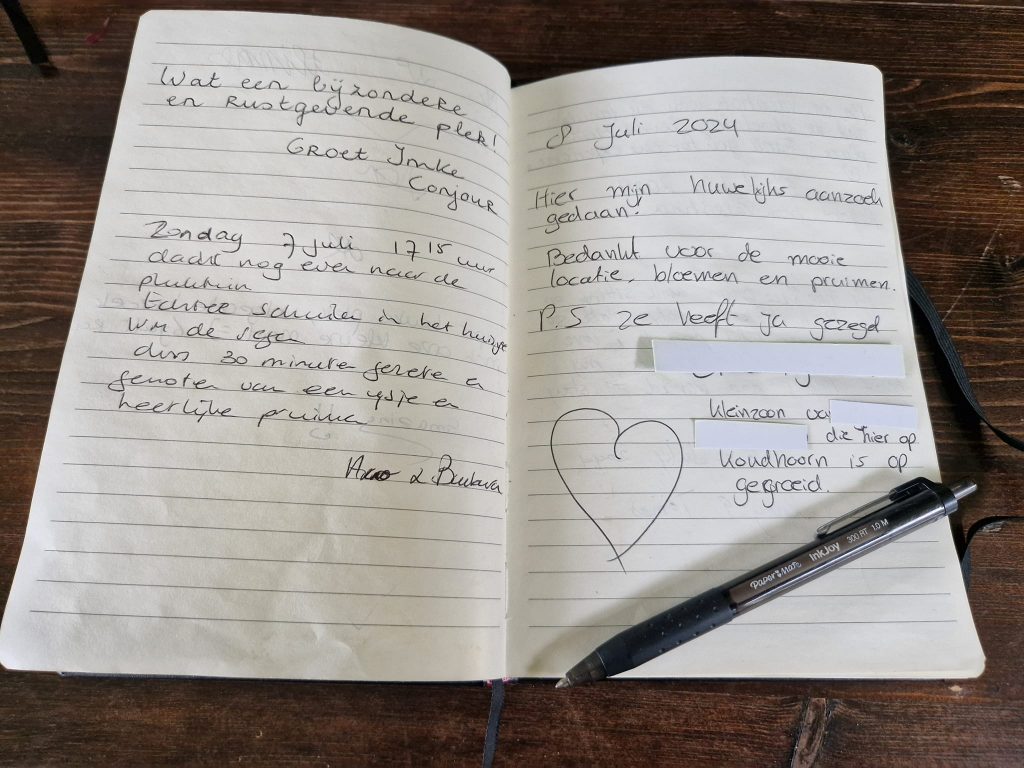 Wat een bijzondere
en Rustgevende plek!
Groet Imke
Conjour
Zondag 7 juli 17 15 uur
dacht nog even naar de
pluktuin
Echter schuilen in het huisje
de regen
dus 30 minuten gezeten en
genoten van een ijsje en
heerlijke pruimen
&
8 Juli 2024
Hier mijn huwelijks aanzoek
gedaan!
Bedankt voor de mooie
locatie, bloemen en pruimen.
P.S ze heeft ja gezegd
Kleinzoon va
die hier op
Koudhoorn is op
gegroeid.
PaperMate InkJoy 300 RT 1.0 M